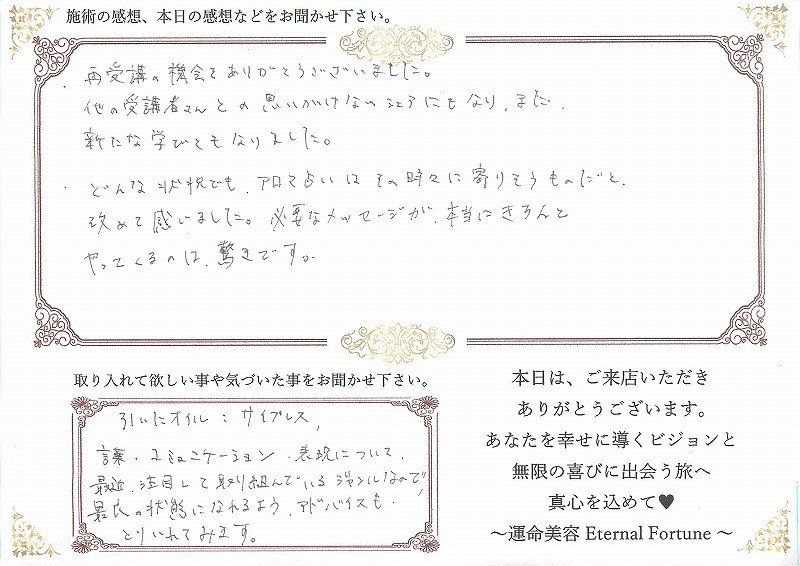 施術の感想、本日の感想などをお聞かせ下さい。
・再受講の機会をありがとうございました。
他の受講者さんとの思いがけないシェアにもなり、また、
新たな学びてもなりました。
・どんな状況でも、アロマ占いはその時々に寄りそうものだと、
改めて感いました。必要なメッセージが、本当にきちんと
やってくるのは、驚きです。
取り入れて欲しい事や気づいた事をお聞かせ下さい。
引いたオイル：サイプレス、
言葉・コミュニケーション・表現について、
最近、注目して取り組んでいるジャンルなので、
最良の状態になれるよう、アドバイスも、
とりいれてみます。
本日は、ご来店いただき
ありがとうございます。
あなたを幸せに導くビジョンと
無限の喜びに出会う旅へ
真心を込めて♥
～運命美容 Eternal Fortune ～